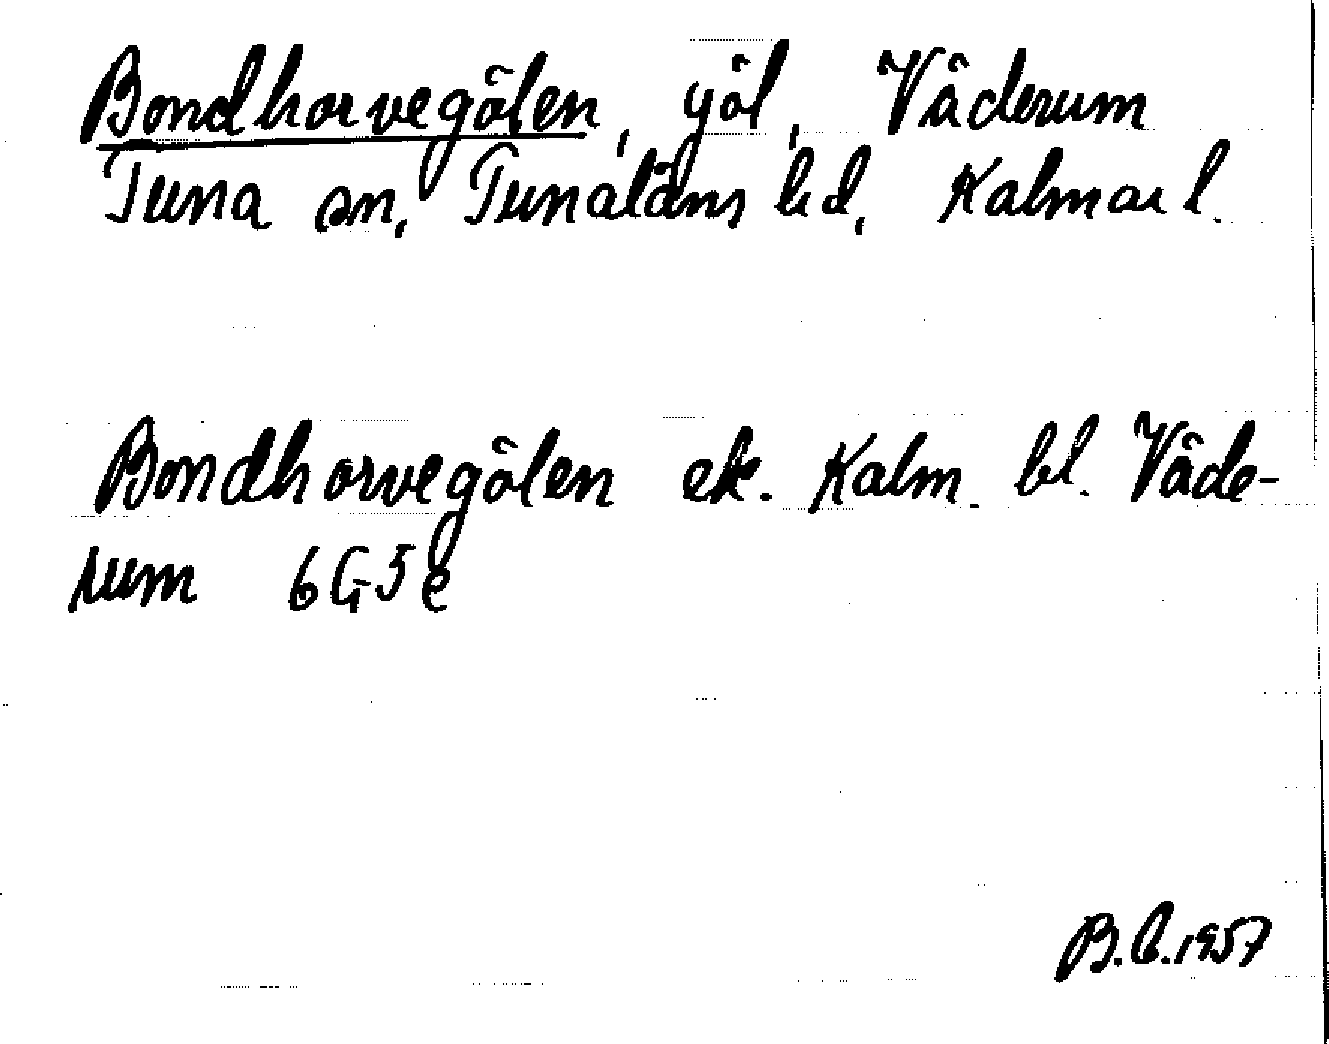 Bondhorvegölen, göl, Väderum
Tuna sn, Tunaläns hd, Kalmar l.
Bondhorvegölen ek. Kalm. bl. Väde-
rum 6G5e
B.C.1957